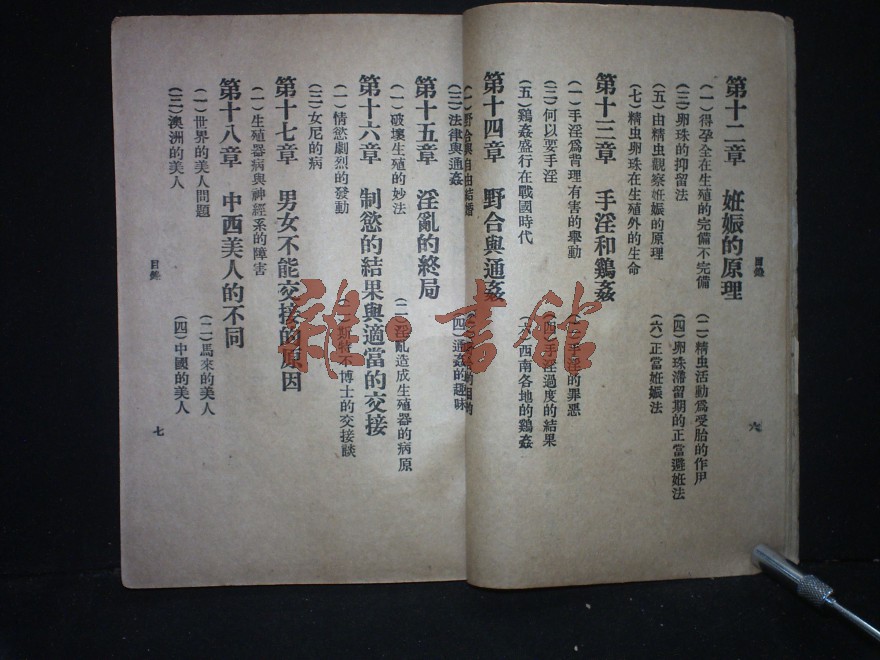 目錄
第十二章 妊娠的原理
(一)得孕全在生殖的完備不完備
(二)精虫活動爲受胎的作用
(三)卵珠的抑留法
(四)卵珠滯留期的正當避妊法
(五)由精虫觀察妊娠的原理
(六)正當妊娠法
(七)精虫卵珠在生殖外的生命
第十三章 手淫和鷄姦
(一)手淫爲背理有害的舉動
(二)手淫的罪惡
(三)何以要手淫
(四)手淫過度的結果
(五)鷄姦盛行在戰國時代
(六)西南各地的鷄姦
第十四章 野合與通姦
六
(一)野合與自由結婚
(三)法律與通姦
(四)通姦的趣味
第十五章 淫亂的終局
(一)破壞生殖的妙法
(二)淫亂造成生殖器的病原
第十六章 制慾的結果與適當的交接
(一)情慾劇烈的發動
(二)斯特不博士的交接談
(三)女尼的病
第十七章 男女不能交接的原因
(一)生殖器病與神經系的障害
第十八章 中西美人的不同
(一)世界的美人問題
(二)馬來的美人
(三)澳洲的美人
(四)中國的美人
目錄
七
雜·書館